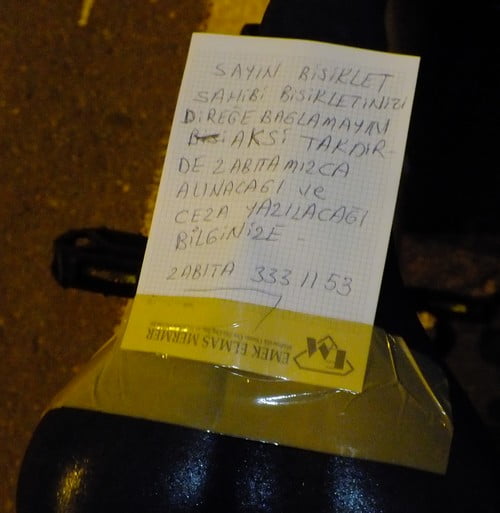 SAYIN BİSİKLET
SAHİBİ BİSİKLETİNİZİ
DİREĞE BAĞLAMAYIN
AKSİ TAKDİR-
DE ZABITAMIZCA
ALINACAĞI ve
CEZA YAZILACAĞI
BİLGİNİZE.
ZABITA 333 11 53
EMEK ELMAS MERMER